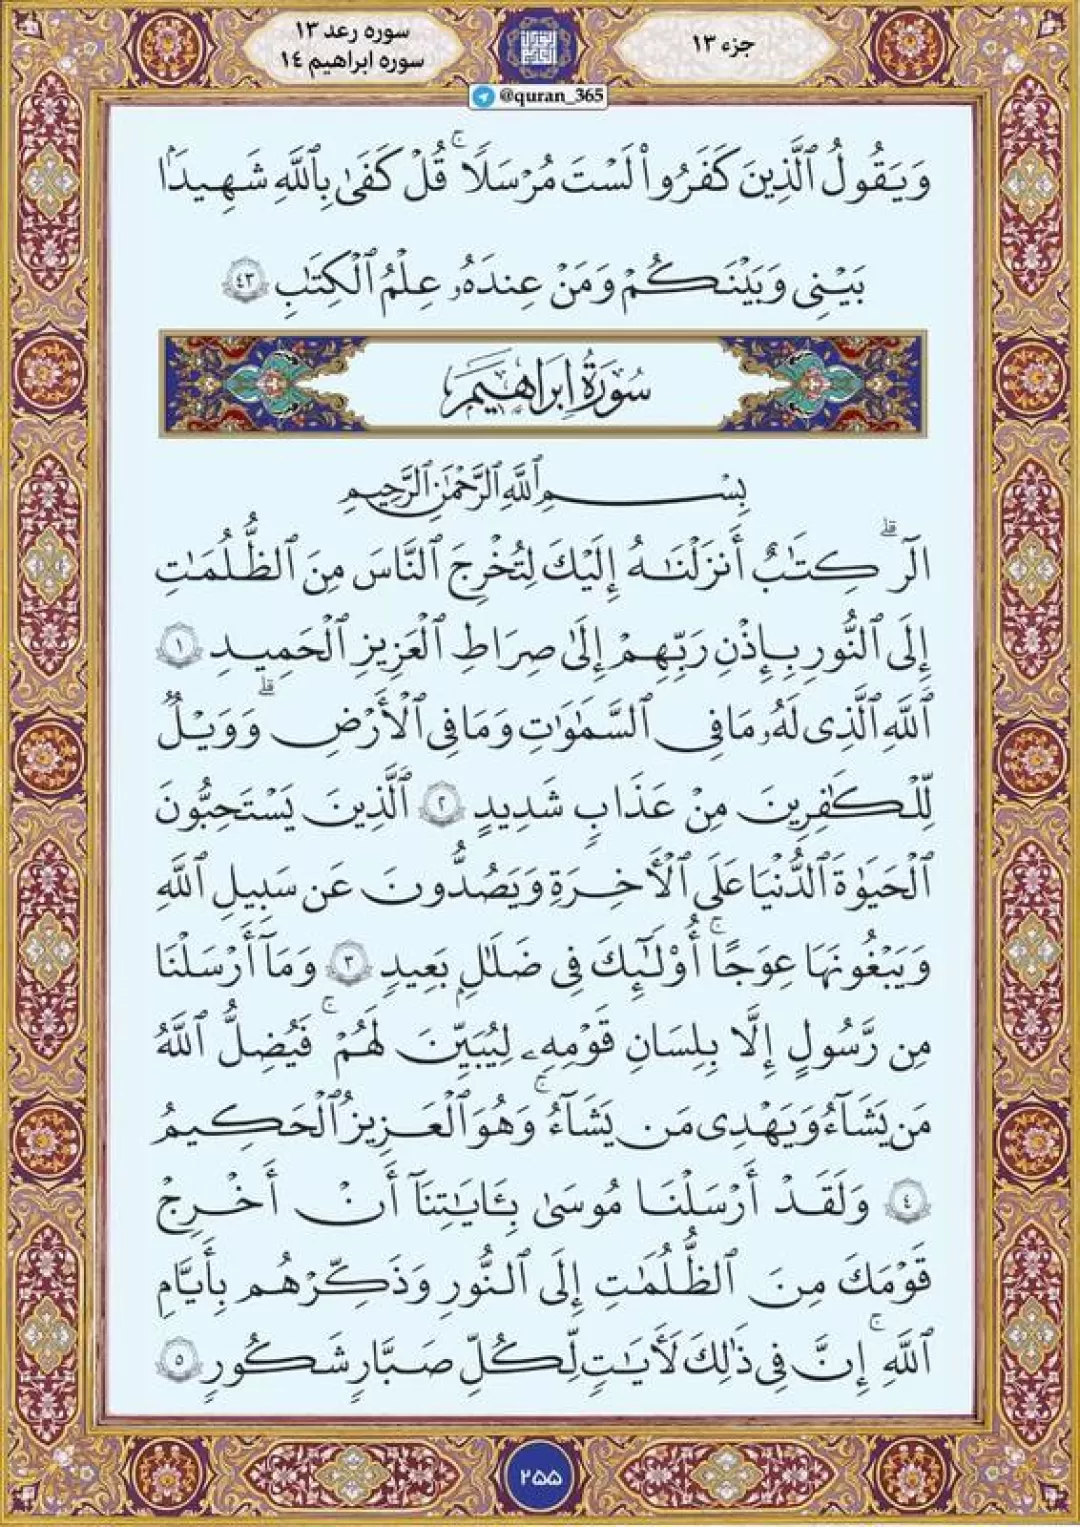 جزء ۱۳
سوره رعد ۱۳
سوره ابراهیم ۱٤
@quran_365
وَيَقُولُ ٱلَّذِينَ كَفَرُوا۟ لَسْتَ مُرْسَلًا ۚ قُلْ كَفَىٰ بِٱللَّهِ شَهِيدًۢا
بَيْنِى وَبَيْنَكُمْ وَمَنْ عِندَهُۥ عِلْمُ ٱلْكِتَـٰبِ ٤٣
سُورَةُ إِبْرَاهِيمَ
بِسْمِ ٱللَّهِ ٱلرَّحْمَـٰنِ ٱلرَّحِيمِ
الٓر ۗ كِتَـٰبٌ أَنزَلْنَـٰهُ إِلَيْكَ لِتُخْرِجَ ٱلنَّاسَ مِنَ ٱلظُّلُمَـٰتِ
إِلَى ٱلنُّورِ بِإِذْنِ رَبِّهِمْ إِلَىٰ صِرَٰطِ ٱلْعَزِيزِ ٱلْحَمِيدِ ١
ٱللَّهِ ٱلَّذِى لَهُۥ مَا فِى ٱلسَّمَـٰوَٰتِ وَمَا فِى ٱلْأَرْضِ ۗ وَوَيْلٌ
لِّلْكَـٰفِرِينَ مِنْ عَذَابٍ شَدِيدٍ ٢ ٱلَّذِينَ يَسْتَحِبُّونَ
ٱلْحَيَوٰةَ ٱلدُّنْيَا عَلَى ٱلْأَخِرَةِ وَيَصُدُّونَ عَن سَبِيلِ ٱللَّهِ
وَيَبْغُونَهَا عِوَجًا ۚ أُو۟لَـٰٓئِكَ فِى ضَلَـٰلٍۭ بَعِيدٍ ٣ وَمَآ أَرْسَلْنَا
مِن رَّسُولٍ إِلَّا بِلِسَانِ قَوْمِهِۦ لِيُبَيِّنَ لَهُمْ ۚ فَيُضِلُّ ٱللَّهُ
مَن يَشَآءُ وَيَهْدِى مَن يَشَآءُ ۚ وَهُوَ ٱلْعَزِيزُ ٱلْحَكِيمُ
٤ وَلَقَدْ أَرْسَلْنَا مُوسَىٰ بِـَٔايَـٰتِنَآ أَنْ أَخْرِجْ
قَوْمَكَ مِنَ ٱلظُّلُمَـٰتِ إِلَى ٱلنُّورِ وَذَكِّرْهُم بِأَيَّامِ
ٱللَّهِ ۚ إِنَّ فِى ذَٰلِكَ لَأَيَـٰتٍ لِّكُلِّ صَبَّارٍ شَكُورٍ ٥
۲۵۵